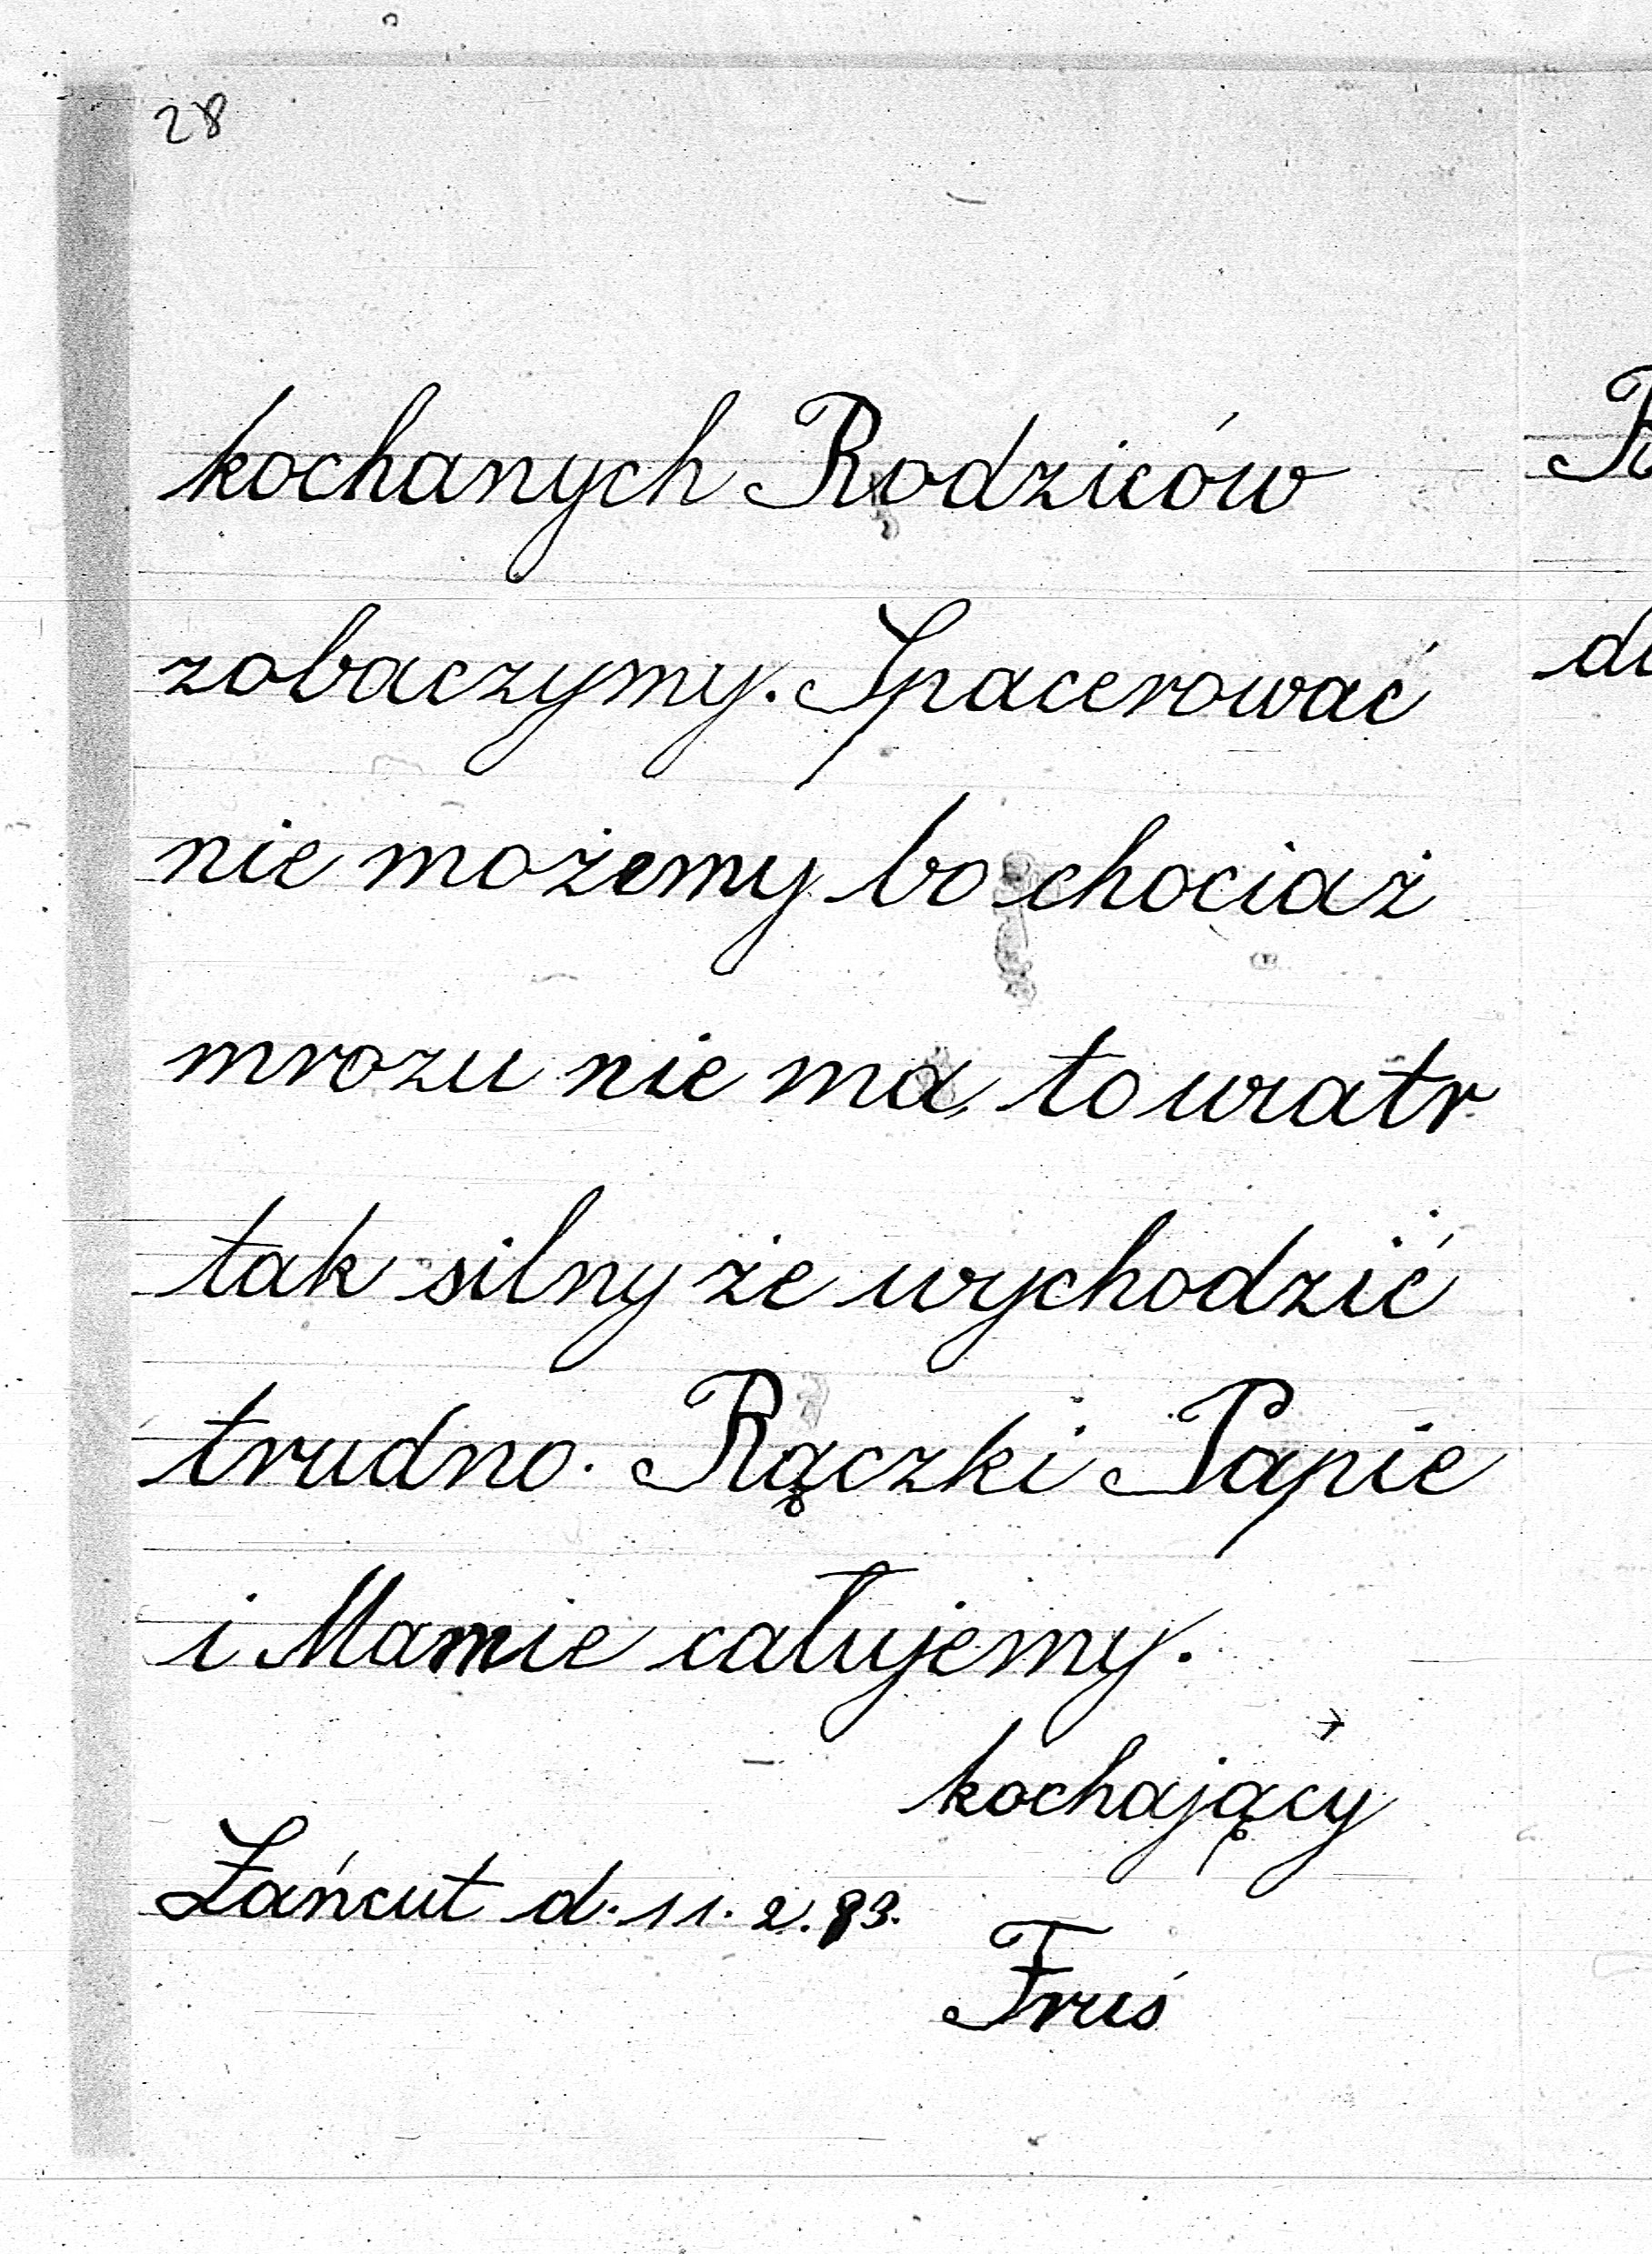 28
kochanych Rodziców
zobaczymy. Spacerować
nie możemy bo chociaż
mrozu nie ma, to wiatr
tak silny że wychodzić
trudno. Rączki Papie
i Mamie całujemy.
kochający
Łańcut d. 11. 2. 83.
Fruś